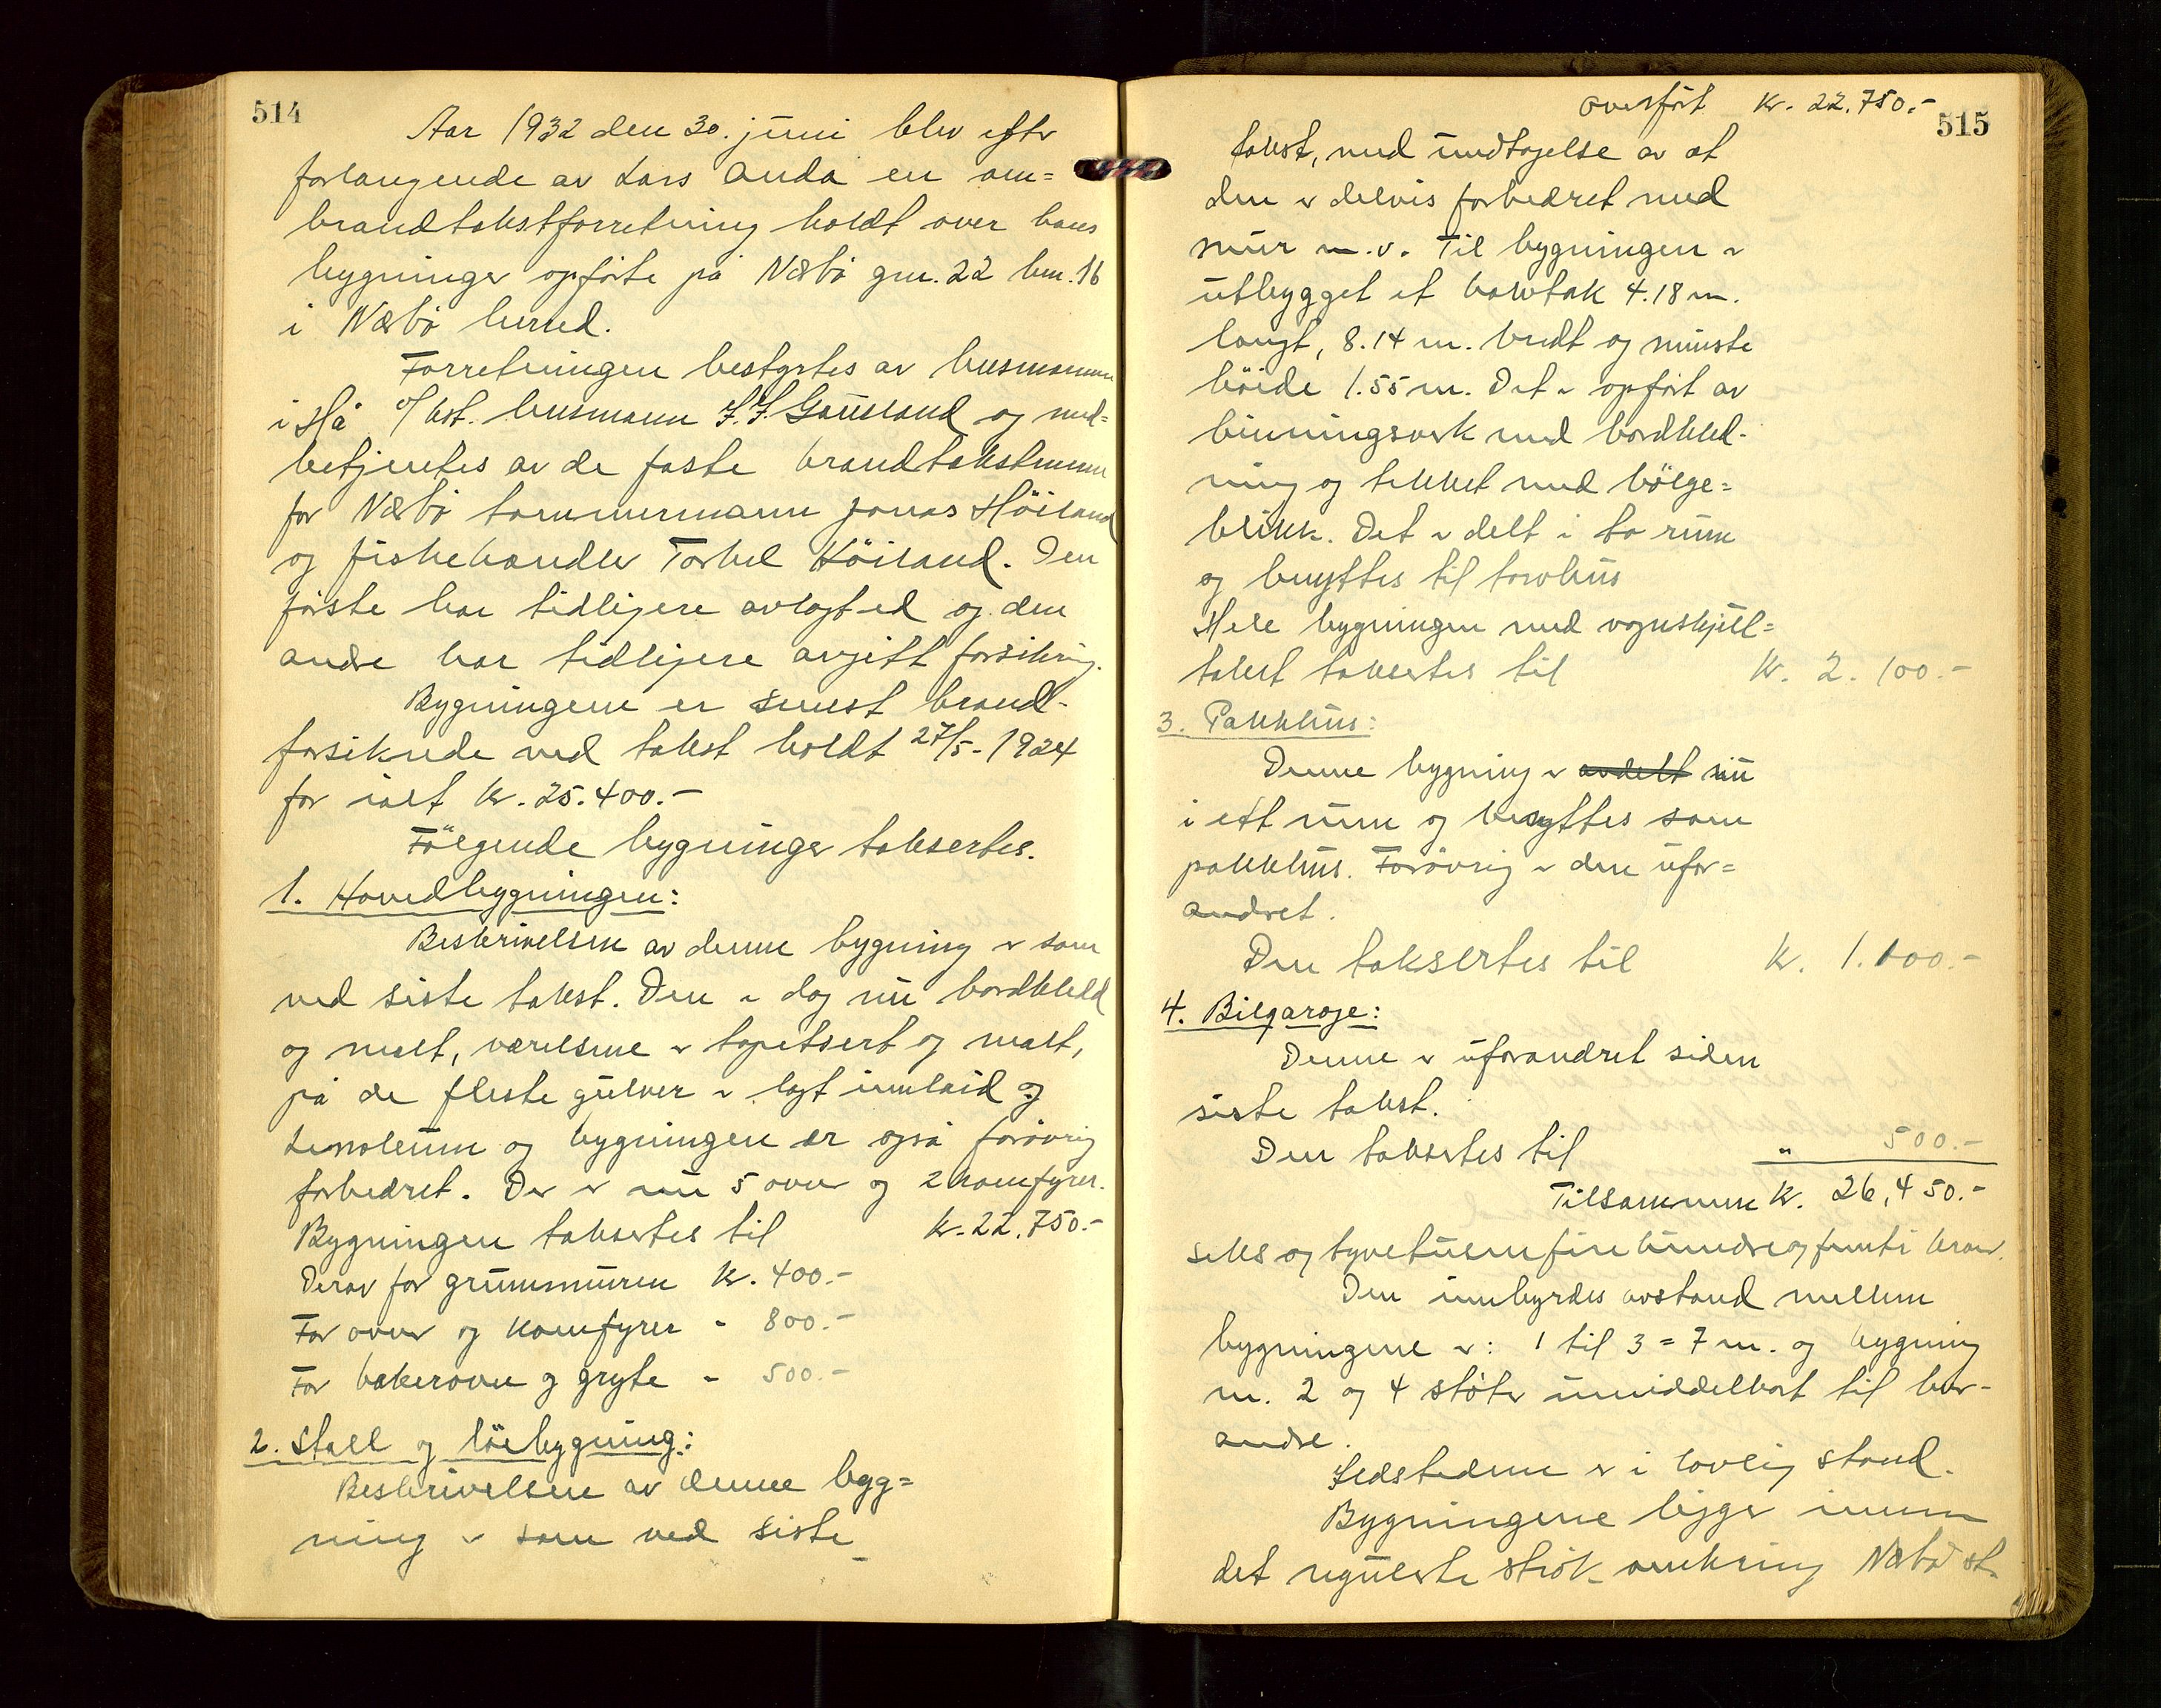 514
Aar 1932 den 30. juni blev efter
forlangende av Lars Anda en om=
brandtakstforretning holdt over hans
bygninger opførte på Nærbø gnr. 22 bnr. 16
i Nærbø herred.
Forretningen bestyrtes av lensmannen
i Hå o/ bst. lensmann J. J. Gausland og med=
betjentes av de faste brandtakstmenn
for Nærbø tømmermann Jonas Höiland
og fiskehandler Torkel Höiland. Den
første har tidligere avlagt ed og den
andre har tidligere avgitt forsikring.
Bygningene er senest brand-
forsikrede ved takst holdt 27/5-1924
for ialt kr. 25.400.-
Følgende bygninger taksertes.
1. Hovedbygningen:
Beskrivelsen av denne bygning er som
ved siste takst. Den er dog nu bordkledd
og malt, værelsene er tapetsert og malt,
på de fleste gulver er lagt innlaid og
Linoleum og bygningen er også forøvrig
forbedret. Der er nu 5 ovner og 2 komfyrer.
Bygningen taksertes til kr. 22.750.-
Derav for grunnmuren kr. 400.-
For ovner og komfyrer " 800.-
For bakerovn og gryte " 500.-
2. Stall og löebygning:
Beskrivelsen av denne byg=
ning er som ved siste
overført kr. 22.750.-
515
takst, med undtagelse av at
den er delvis forbedret med
mur m.v. Til bygningen er
utbygget et halvtak 4.18 m.
langt, 8.14 m. bredt og minste
höide 1.55 m. Det er opført av
binningsverk med bordkled-
ning og tekket med bölge=
blikk. Det er delt i to rum
og benyttes til torvhus
Hele bygningen med vognskjul=
takst taksertes til kr. 2.100.-
3. Pakkhus:
Denne bygning er avdelt nu
i ett rum og benyttes som
pakkhus. Forøvrig er den ufor=
andret.
Den taksertes til kr. 1.100.-
4. Bilgarage:
Denne er uforandret siden
siste takst.
Den taksertes til " 500.-
Tilsammen kr. 26,450.-
seks og tyvetusenfirehundreogfemti kron.
Den innbyrdes avstand mellem
bygningene er: 1 til 3 = 7 m. og bygning
nr. 2 og 4 støter umiddelbart til hver-
andre.
Ildstedene er i lovlig stand.
Bygningene ligger innen
det regulerte strøk omkring Nærbø st.